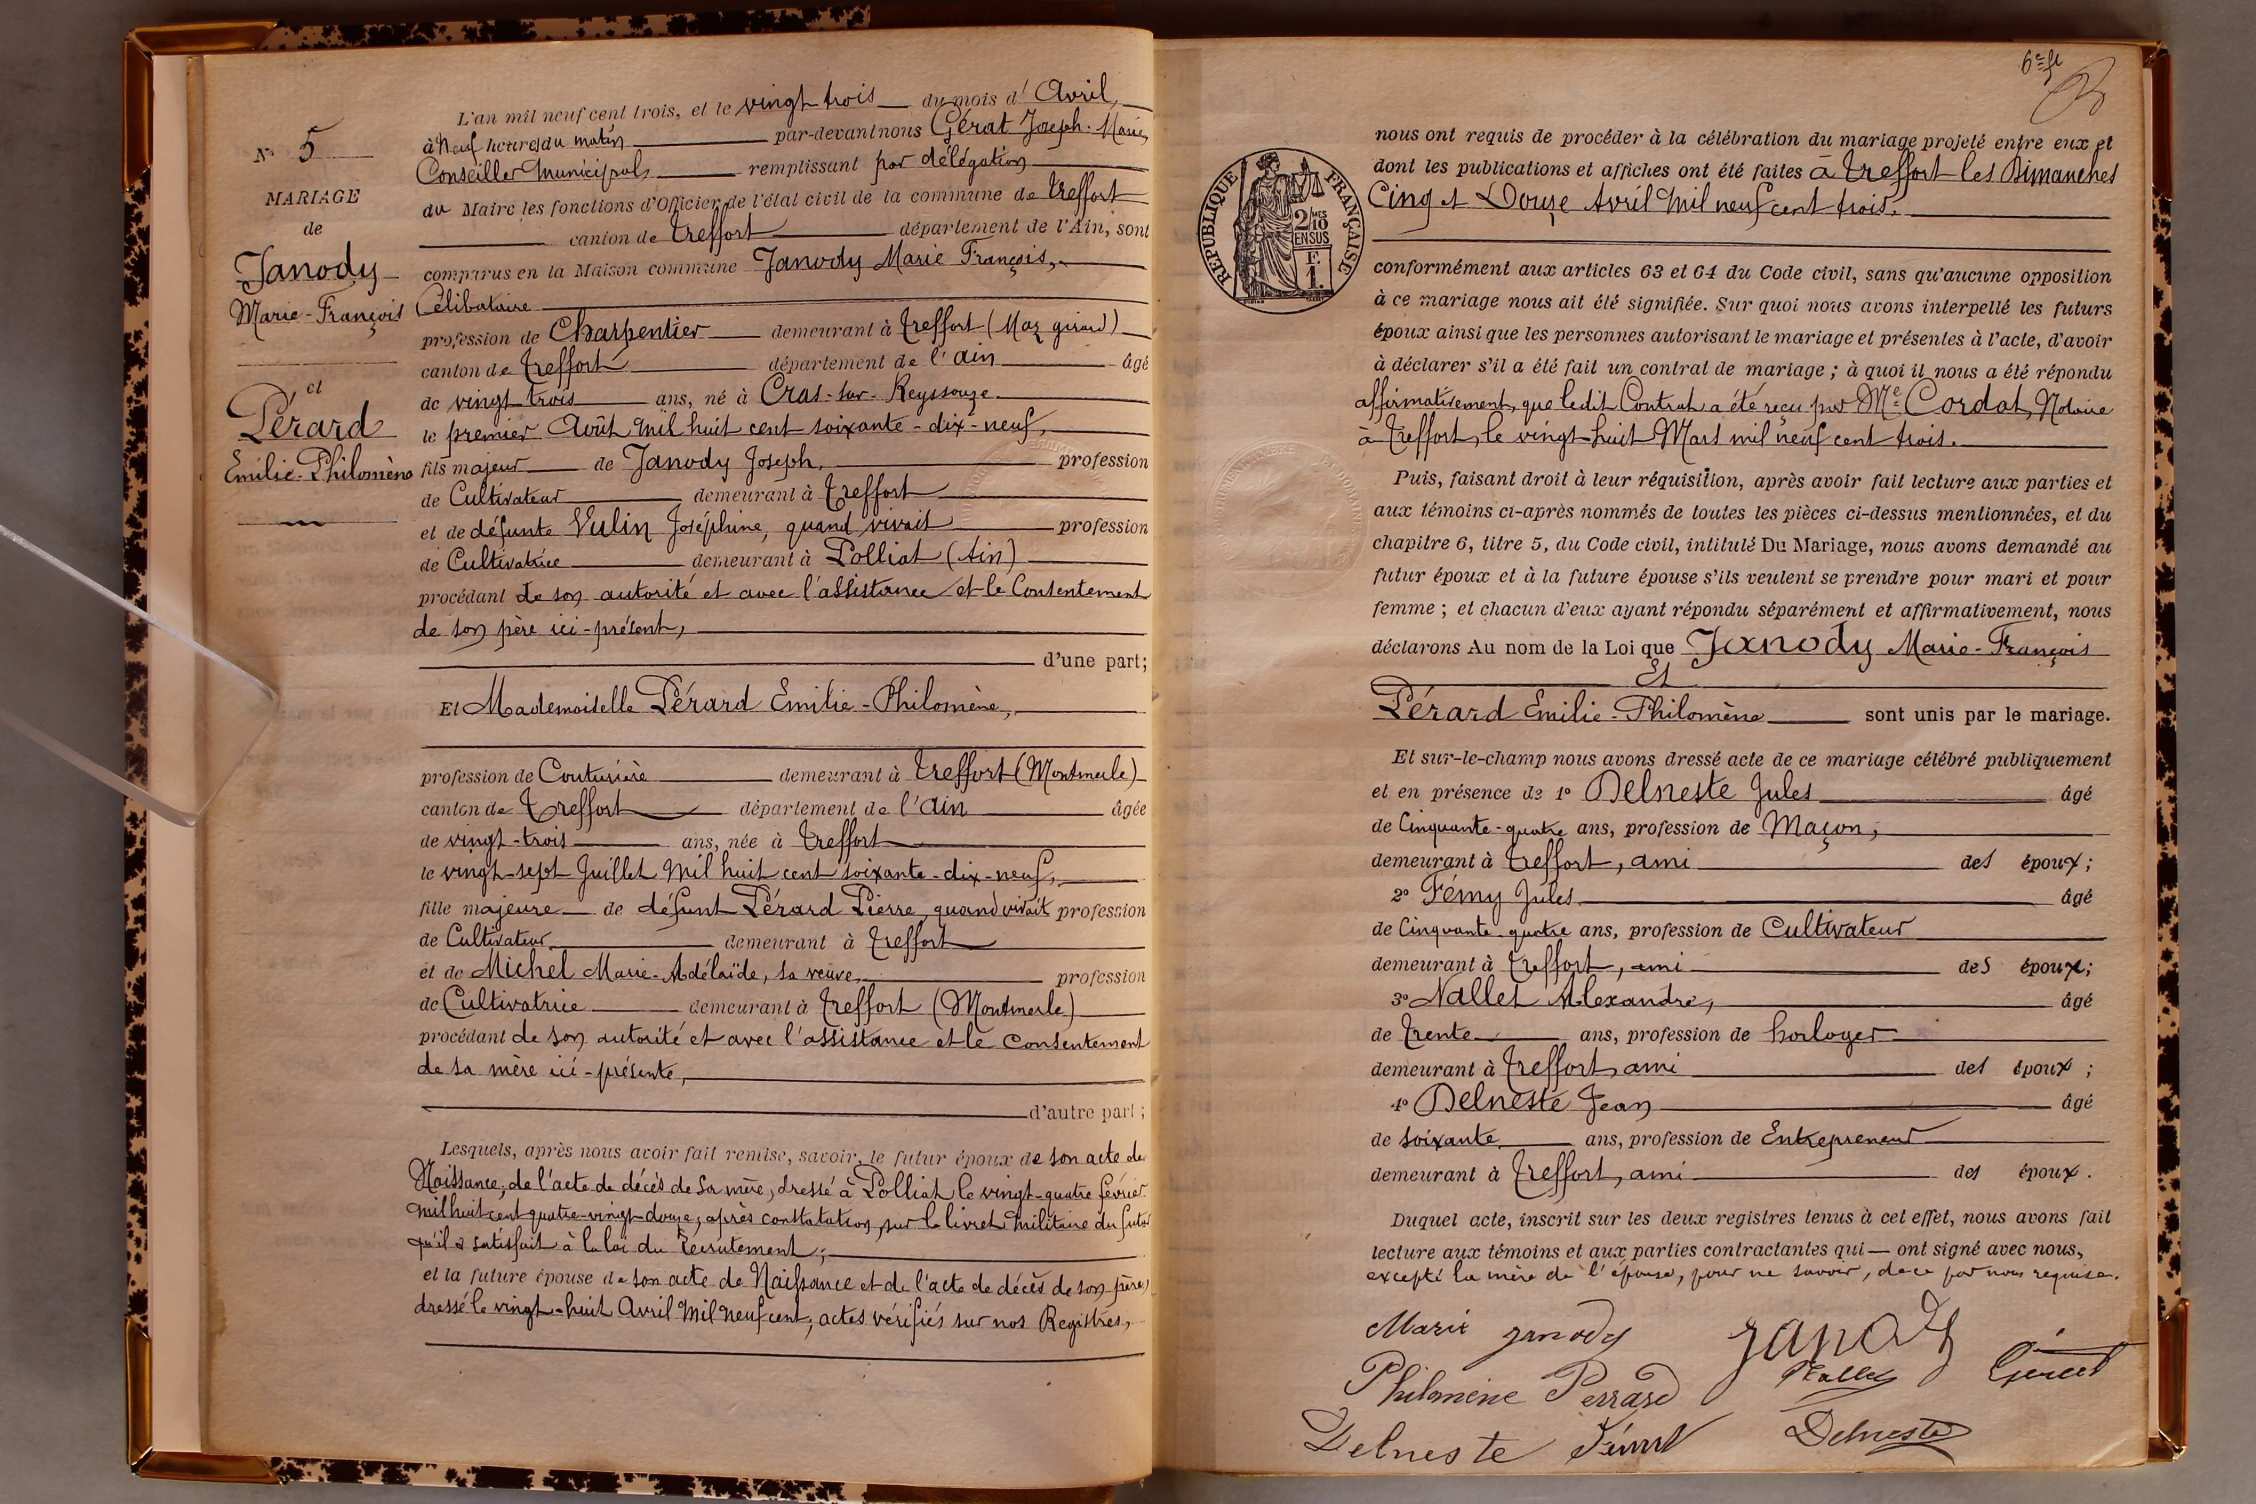 N° 5
MARIAGE
de
Janody
Marie-François
et
Pérard
Emilie-Philomène
L'an mil neuf cent trois, et le vingt trois du mois d'Avril,
à Neuf heures du matin par-devant nous Gérat Joseph-Marie,
Conseiller Municipal, remplissant par délégation
du Maire les fonctions d'Officier de l'état civil de la commune de Treffort
canton de Treffort département de l'Ain, sont
comparus en la Maison commune Janody Marie François,
Célibataire
profession de Charpentier demeurant à Treffort (Maz girard)
canton de Treffort département de l'ain âgé
de vingt trois ans, né à Cras-sur-Reyssouze
le premier Août Mil huit cent soixante-dix-neuf,
fils majeur de Janody Joseph, profession
de Cultivateur demeurant à Treffort
et de défunte Vulin Joséphine, quand vivait profession
de Cultivatrice demeurant à Polliat (Ain)
procédant de son autorité et avec l'assistance et le Consentement
de son père ici-présent,
d'une part;
Et Mademoiselle Pérard Emilie-Philomène,
profession de Couturière demeurant à Treffort (Montmerle)
canton de Treffort département de l'ain âgée
de vingt-trois ans, née à Treffort
le vingt-sept Juillet Mil huit cent soixante-dix-neuf,
fille majeure de défunt Pérard Pierre, quand vivait profession
de Cultivateur demeurant à Treffort
et de Michel Marie-Adélaïde, sa veuve, profession
de Cultivatrice demeurant à Treffort (Montmerle)
procédant de son autorité et avec l'assistance et le consentement
de sa mère ici-présente,
d'autre part;
Lesquels, après nous avoir fait remise, savoir, le futur époux de son acte de
Naissance, de l'acte de décès de sa mère, dressé à Polliat le vingt-quatre février
mil huit cent quatre-vingt-douze; après constatation, sur le livret militaire du futur
qu'il a satisfait à la loi du Recrutement;
et la future épouse de son acte de Naissance et de l'acte de décès de son père,
dressé le vingt-huit Avril Mil neuf cent; actes vérifiés sur nos Registres,
6e
nous ont requis de procéder à la célébration du mariage projeté entre eux et
dont les publications et affiches ont été faites à Treffort les Dimanches
Cinq et Douze Avril Mil neuf cent trois.
RÉPUBLIQUE FRANÇAISE
2/10
MES
EN SUS
F.
1.
conformément aux articles 63 et 64 du Code civil, sans qu'aucune opposition
à ce mariage nous ait été signifiée. Sur quoi nous avons interpellé les futurs
époux ainsi que les personnes autorisant le mariage et présentes à l'acte, d'avoir
à déclarer s'il a été fait un contrat de mariage; à quoi il nous a été répondu
affirmativement, que ledit Contrat a été reçu par Me Cordat, Notaire
à Treffort, le vingt-huit Mars mil neuf cent trois.
Puis, faisant droit à leur réquisition, après avoir fait lecture aux parties et
aux témoins ci-après nommés de toutes les pièces ci-dessus mentionnées, et du
chapitre 6, titre 5, du Code civil, intitulé Du Mariage, nous avons demandé au
futur époux et à la future épouse s'ils veulent se prendre pour mari et pour
femme; et chacun d'eux ayant répondu séparément et affirmativement, nous
déclarons Au nom de la Loi que Janody Marie-François
Et
Pérard Emilie-Philomène sont unis par le mariage.
Et sur-le-champ nous avons dressé acte de ce mariage célébré publiquement
et en présence de 1° Delneste Jules âgé
de Cinquante-quatre ans, profession de Maçon,
demeurant à Treffort, ami des époux;
2° Fémy Jules âgé
de Cinquante-quatre ans, profession de Cultivateur
demeurant à Treffort, ami des époux;
3° Nallet Alexandre, âgé
de Trente ans, profession de horloger
demeurant à Treffort, ami des époux;
4° Delneste Jean âgé
de soixante ans, profession de Entrepreneur
demeurant à Treffort, ami des époux.
Duquel acte, inscrit sur les deux registres tenus à cet effet, nous avons fait
lecture aux témoins et aux parties contractantes qui — ont signé avec nous,
excepté la mère de l'épouse, pour ne savoir, de ce par nous requise.
Marie Janody Janody
Philomène Perrard Nallet
Delneste Delneste